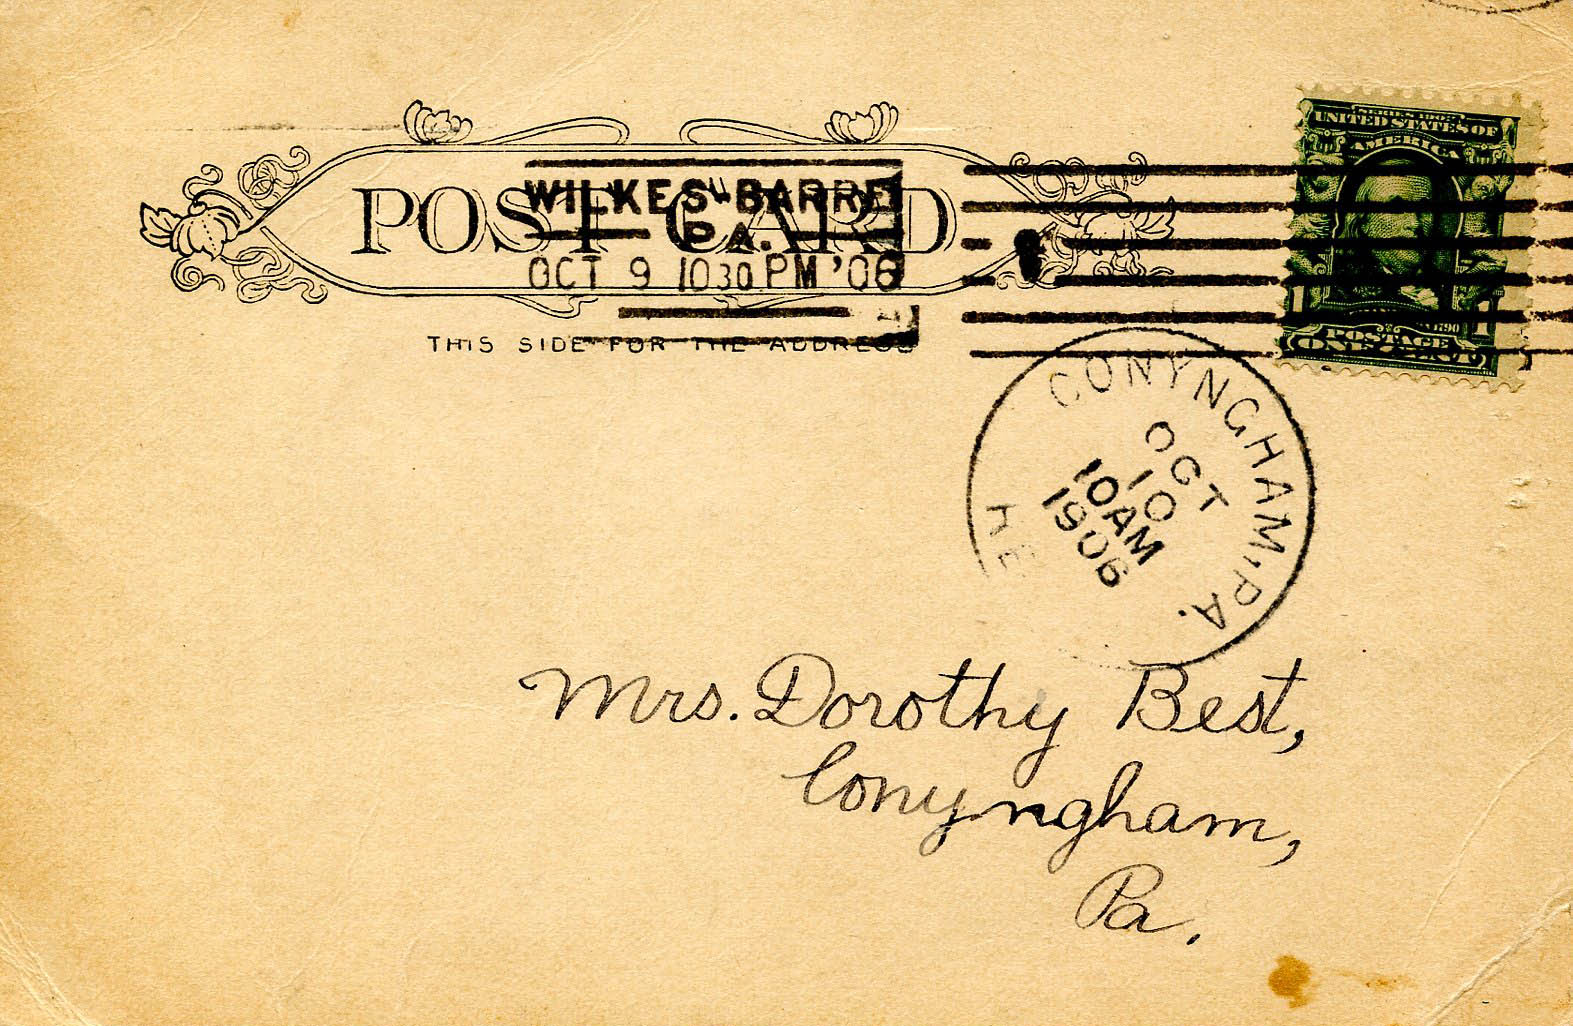 SERIES 1902
UNITED STATES OF
AMERICA
POST CARD
WILKES-BARRE
PA.
OCT 9 10 30 PM '06
THIS SIDE FOR THE ADDRESS
POSTAGE
CONYNGHAM, PA.
OCT
10
10 AM
1906
Mrs. Dorothy Best,
Conyngham,
Pa.